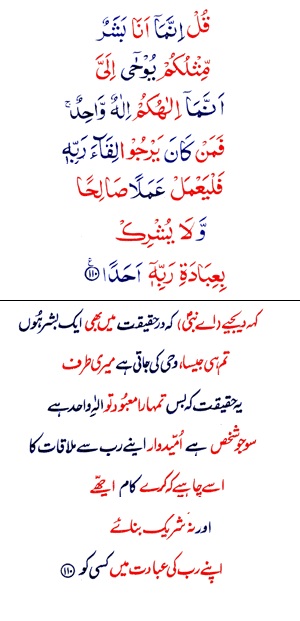 قُلْ اِنَّمَاۤ اَنَا بَشَرٌ
مِّثْلُكُمْ يُوْحٰۤى اِلَىَّ
اَنَّمَاۤ اِلٰهُكُمْ اِلٰهٌ وَّاحِدٌ ۚ
فَمَنْ كَانَ يَرْجُوْا لِقَآءَ رَبِّهٖ
فَلْيَعْمَلْ عَمَلًا صَالِحًا
وَّ لَا يُشْرِكْ
بِعِبَادَةِ رَبِّهٖۤ اَحَدًا ﴿۱۱۰﴾ ع
کہہ دیجیے (اے نبیؐ) کہ درحقیقت میں بھی ایک بشر ہُوں
تم ہی جیسا، وحی کی جاتی ہے میری طرف
یہ حقیقت کہ بس تمہارا معبُود تو الٰہِ واحد ہے
سو جو شخص ہے اُمّیدوار اپنے رب سے ملاقات کا
اسے چاہیے کہ کرے کام اچھّے
اور نہ شریک بنائے
اپنے رب کی عبادت میں کسی کو ﴿۱۱۰﴾